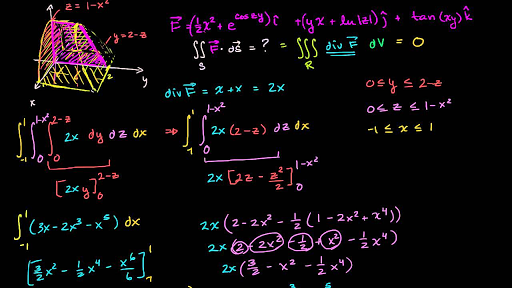 z = 1-x²
y = 2-z
y
x
2
F⃗ = (½x² + e^(cos zy)) î + (yx + ln|z|) ĵ + tan(xy) k̂
∬_S F⃗ · ds⃗ = ? = ∭_R div F⃗ dV = 0
div F⃗ = x + x = 2x
0 ≤ y ≤ 2-z
0 ≤ z ≤ 1-x²
-1 ≤ x ≤ 1
∫_{-1}^{1} ∫_0^{1-x²} ∫_0^{2-z} 2x dy dz dx ⇒ ∫_{-1}^{1} ∫_0^{1-x²} 2x(2-z) dz dx
[2xy]_0^{2-z}
2x [2z - z²/2]_0^{1-x²}
∫_{-1}^{1} (3x - 2x³ - x⁵) dx
2x (2 - 2x² - ½(1 - 2x² + x⁴))
2x (2 - 2x² - ½ + x² - ½x⁴)
[3/2 x² - ½x⁴ - x⁶/6]_{-1}^{1}
2x (3/2 - x² - ½x⁴)